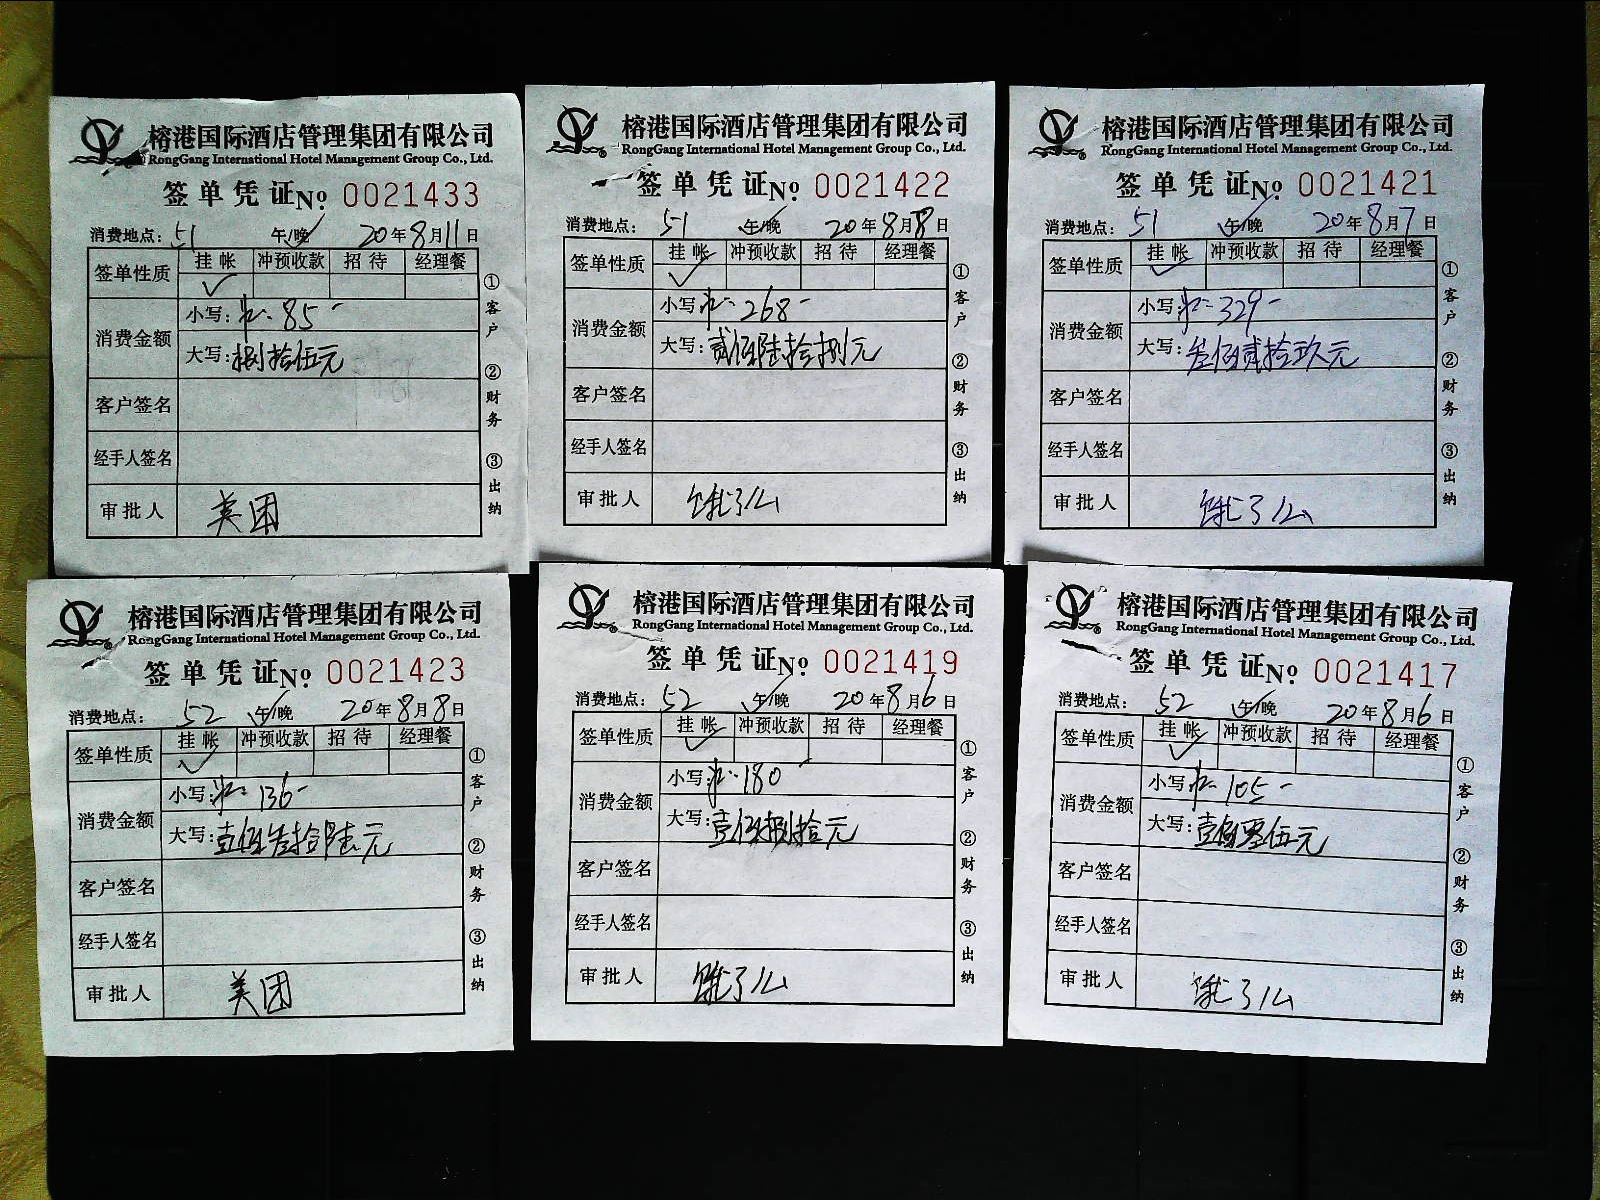 榕港国际酒店管理集团有限公司
RongGang International Hotel Management Group Co., Ltd.
签单凭证 No. 0021433
消费地点: 51 午/晚 20年8月11日
签单性质 挂帐 冲预收款 招待 经理餐
✓
消费金额 小写: 85-
大写: 捌拾伍元
客户签名
经手人签名
审批人 美团
①客户 ②财务 ③出纳
榕港国际酒店管理集团有限公司
RongGang International Hotel Management Group Co., Ltd.
签单凭证 No. 0021422
消费地点: 51 午/晚 20年8月8日
签单性质 挂帐 冲预收款 招待 经理餐
✓
消费金额 小写: 268-
大写: 贰佰陆拾捌元
客户签名
经手人签名
审批人 饿了么
①客户 ②财务 ③出纳
榕港国际酒店管理集团有限公司
RongGang International Hotel Management Group Co., Ltd.
签单凭证 No. 0021421
消费地点: 51 午/晚 20年8月7日
签单性质 挂帐 冲预收款 招待 经理餐
✓
消费金额 小写: 329-
大写: 叁佰贰拾玖元
客户签名
经手人签名
审批人 饿了么
①客户 ②财务 ③出纳
榕港国际酒店管理集团有限公司
RongGang International Hotel Management Group Co., Ltd.
签单凭证 No. 0021423
消费地点: 52 午/晚 20年8月8日
签单性质 挂帐 冲预收款 招待 经理餐
✓
消费金额 小写: 136-
大写: 壹佰叁拾陆元
客户签名
经手人签名
审批人 美团
①客户 ②财务 ③出纳
榕港国际酒店管理集团有限公司
RongGang International Hotel Management Group Co., Ltd.
签单凭证 No. 0021419
消费地点: 52 午/晚 20年8月6日
签单性质 挂帐 冲预收款 招待 经理餐
✓
消费金额 小写: 180-
大写: 壹佰捌拾元
客户签名
经手人签名
审批人 饿了么
①客户 ②财务 ③出纳
榕港国际酒店管理集团有限公司
RongGang International Hotel Management Group Co., Ltd.
签单凭证 No. 0021417
消费地点: 52 午/晚 20年8月6日
签单性质 挂帐 冲预收款 招待 经理餐
✓
消费金额 小写: 105-
大写: 壹佰零伍元
客户签名
经手人签名
审批人 饿了么
①客户 ②财务 ③出纳